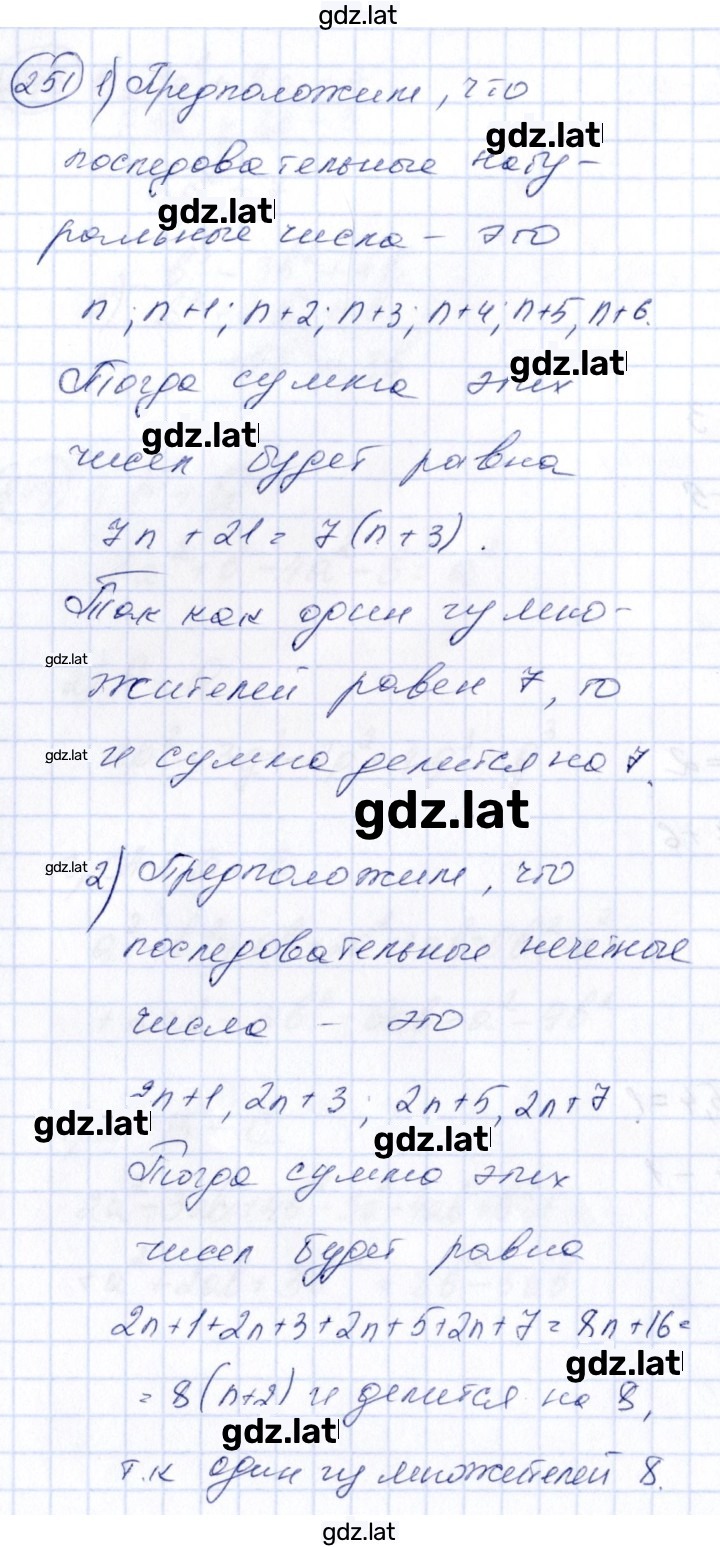 gdz.lat
251 1) Предположим, что
gdz.lat
последовательные нату-
gdz.lat
ральные числа – это
n; n+1; n+2; n+3; n+4; n+5, n+6.
gdz.lat
Тогда сумма этих
gdz.lat
чисел будет равна
7n + 21 = 7(n+3).
Так как один из мно-
gdz.lat
жителей равен 7, то
gdz.lat и сумма делится на 7.
gdz.lat
gdz.lat 2) Предположим, что
последовательные нечетные
числа – это
2n+1, 2n+3; 2n+5, 2n+7.
gdz.lat
gdz.lat
Тогда сумма этих
чисел будет равна
2n+1+2n+3+2n+5+2n+7 = 8n+16=
gdz.lat
= 8(n+2) и делится на 8,
gdz.lat
т.к один из множителей 8.
gdz.lat